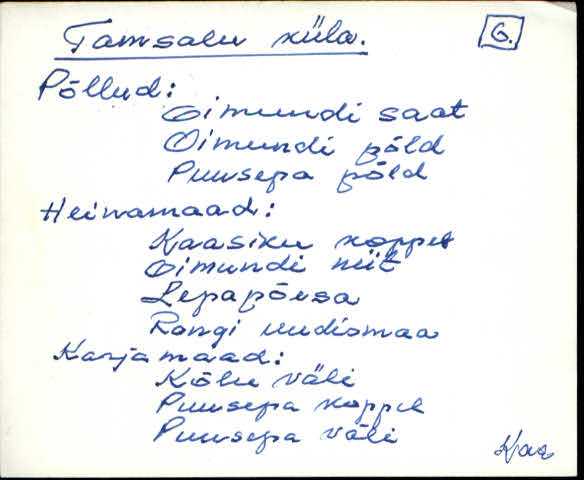 Tamsalu küla. 6.
Põllud:
Oimundi saat
Oimundi põld
Puusepa põld
Heinamaad:
Kaasiku koppel
Oimundi niit
Lepapõesa
Rongi uudismaa
Karjamaad:
Kõlu väli
Puusepa koppel
Puusepa väli